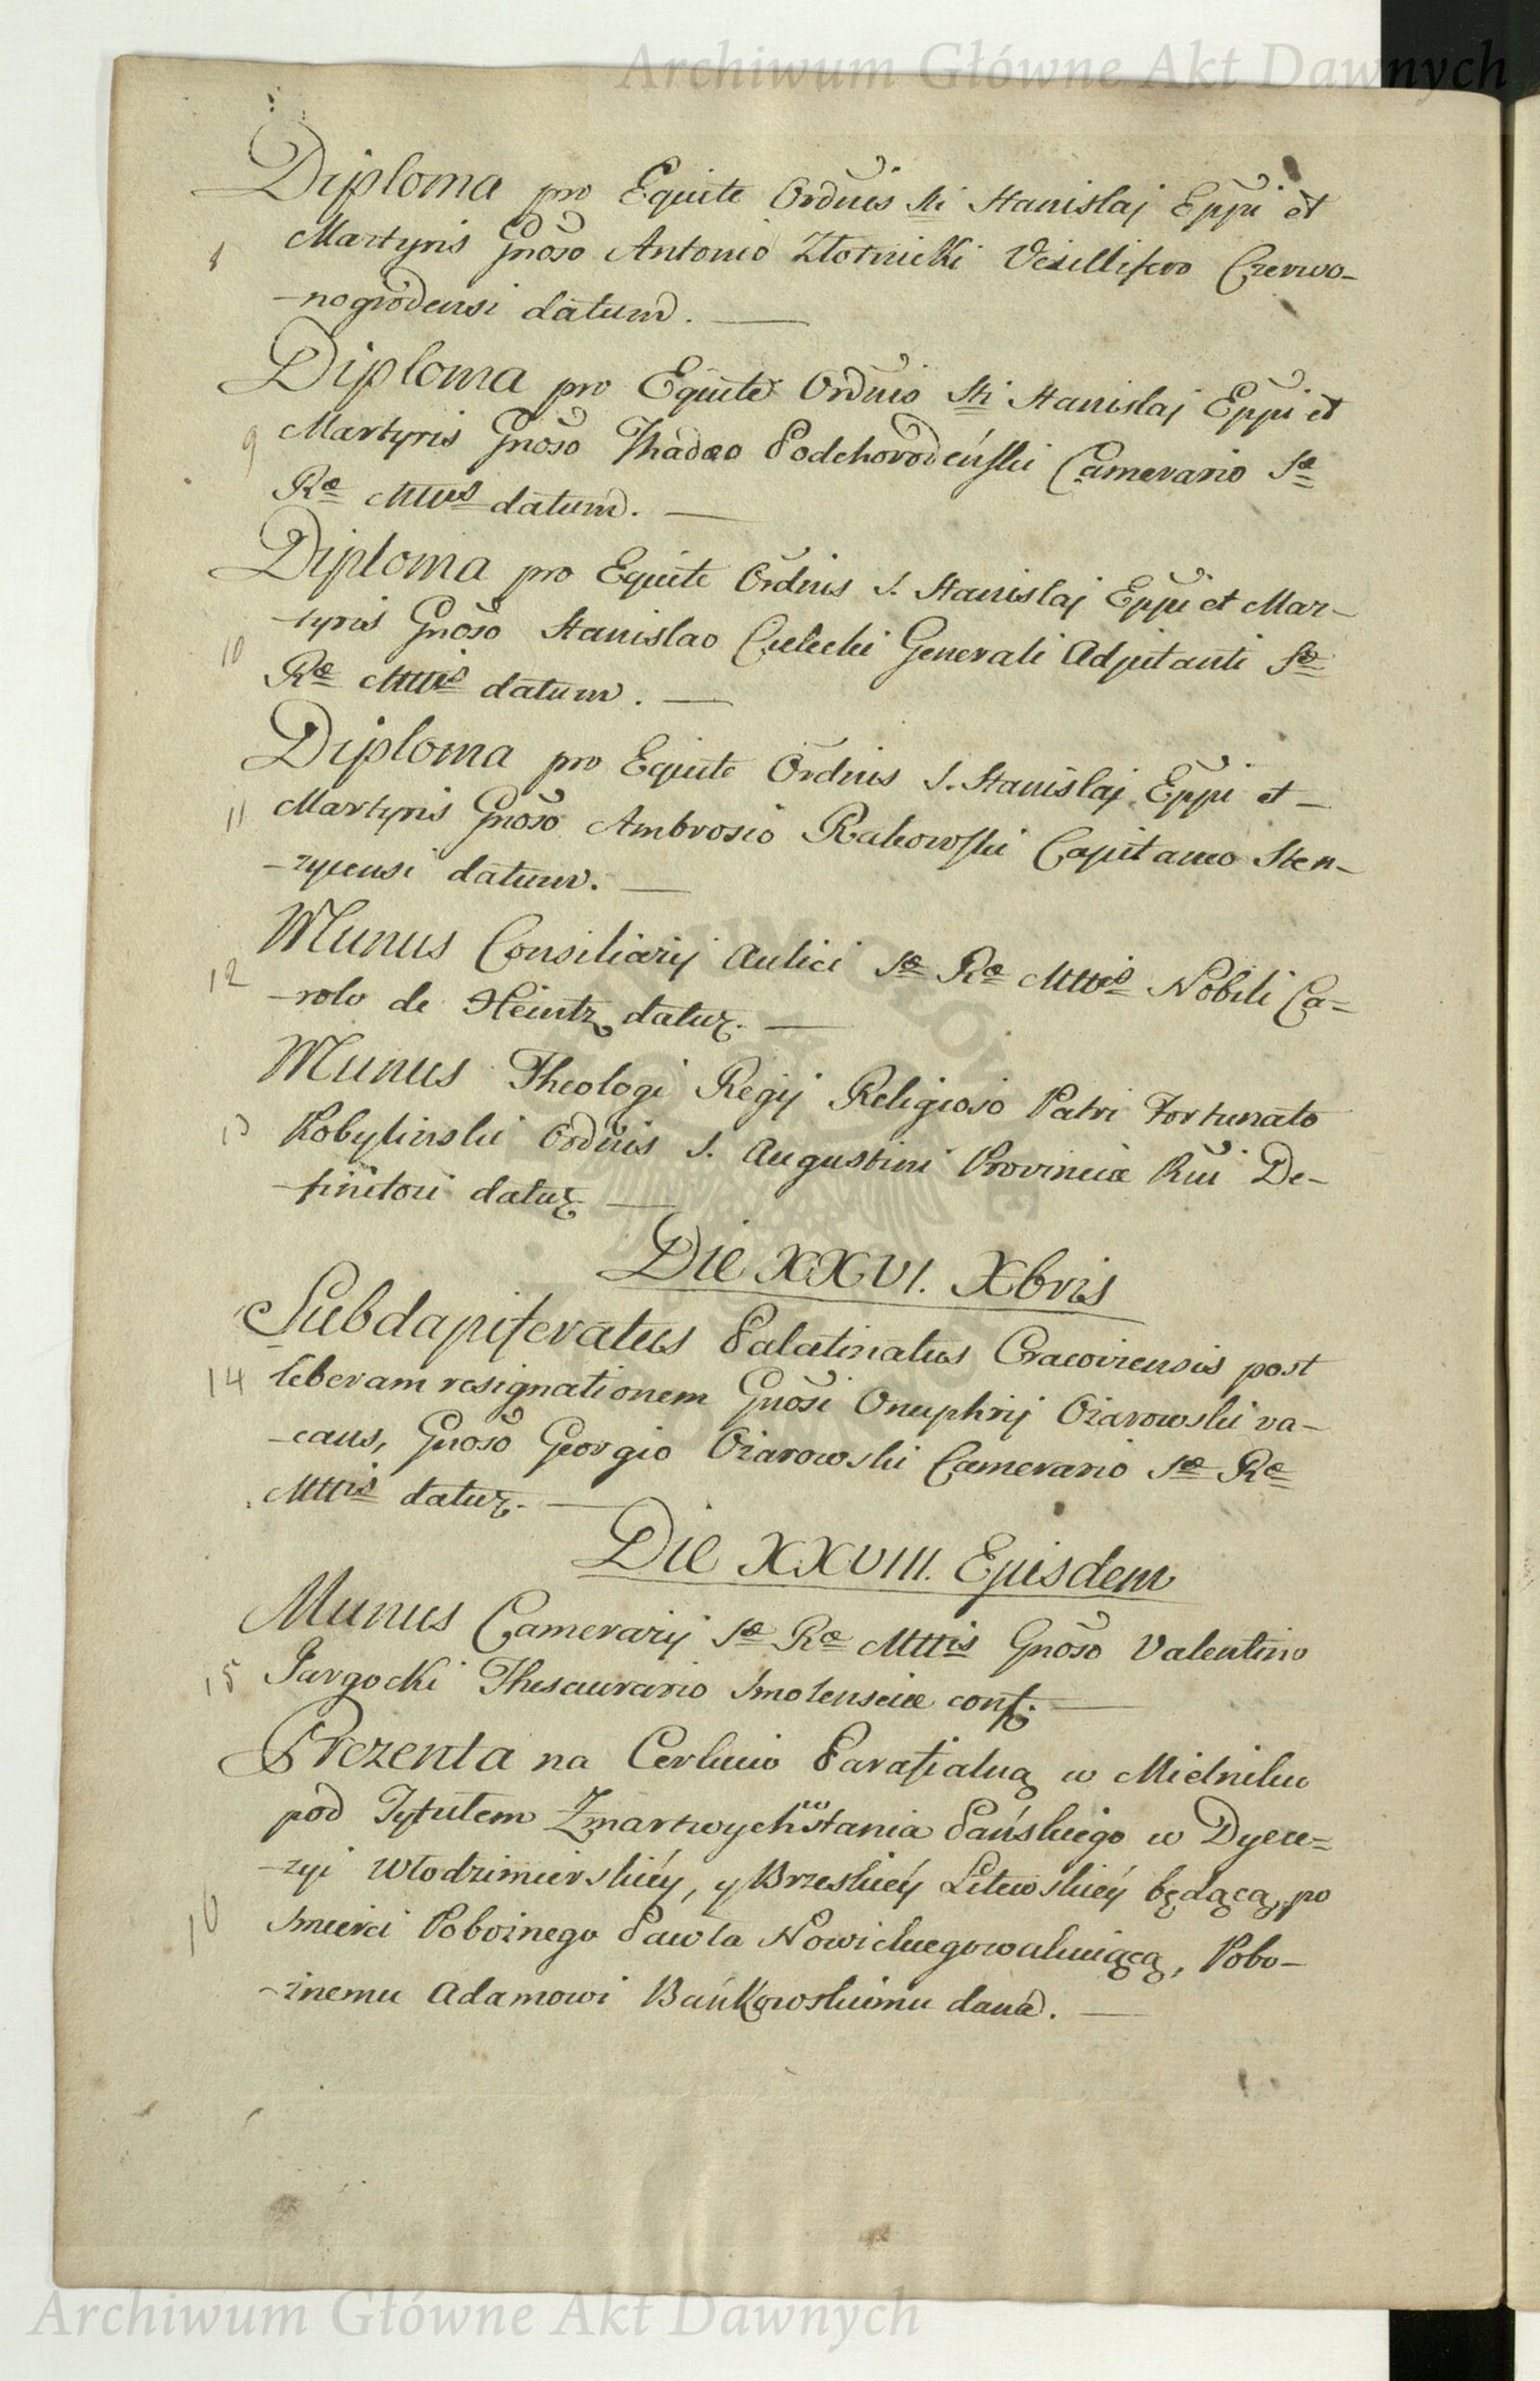 Archiwum Główne Akt Dawnych
Diploma pro Equite Ordnis Sti Stanislaj Eppi et
8 Martyris Gnoso Antonio Złotnicki Vexillifero Czerwo-
-nogrodensi datum.
Diploma pro Equite Ordnis Sti Stanislaj Eppi et
9 Martyris Gnoso Thadæo Podchorodeński Camerario Sæ
Ræ Mttis datum.
Diploma pro Equite Ordinis S. Stanislaj Eppi et Mar-
-tyris Gnoso Stanislao Generali Adjutanti Sæ
10 Ræ Mttis datum.
Diploma pro Equite Ordinis S. Stanislaj Eppi et
11 Martyris Gnoso Ambrosio Rakowski Capitaneo Sten-
-zycensi datum.
Munus Consiliarij Aulici Sæ Ræ Mttis Nobili Ca-
12 -rolo de Heintz datur.
Munus Theologi Regij Religioso Patri Fortunato
13 Kobylinski Ordnis S. Augustini Provinciæ Rni De-
-finitori datur.
Die XXVI. Xbris
Subdapiferatus Palatinatus Cracoviensis post
14 liberam resignationem Gnosi Onuphrij Ożarowski va-
-cans, Gnoso Georgio Ożarowski Camerario Sæ Ræ
Mttis datur.
Die XXVIII. Ejusdem
Munus Camerarij Sæ Ræ Mttis Gnoso Valentino
15 Jargocki Thesaurario Smolensciæ conf.
Prezenta na Cerkwio Parafialną w Mielniku
pod Tytułem Zmartwychwstania Pańskiego w Dyece-
-zyi Włodzimirskiéy, y Brzeskiéy Litewskiéy będącą, po
16 śmierci Pobożnego Pawła Nowickiego wakuiącą, Pobo-
-żnemu Adamowi Bańkowskiemu dana.
Archiwum Główne Akt Dawnych